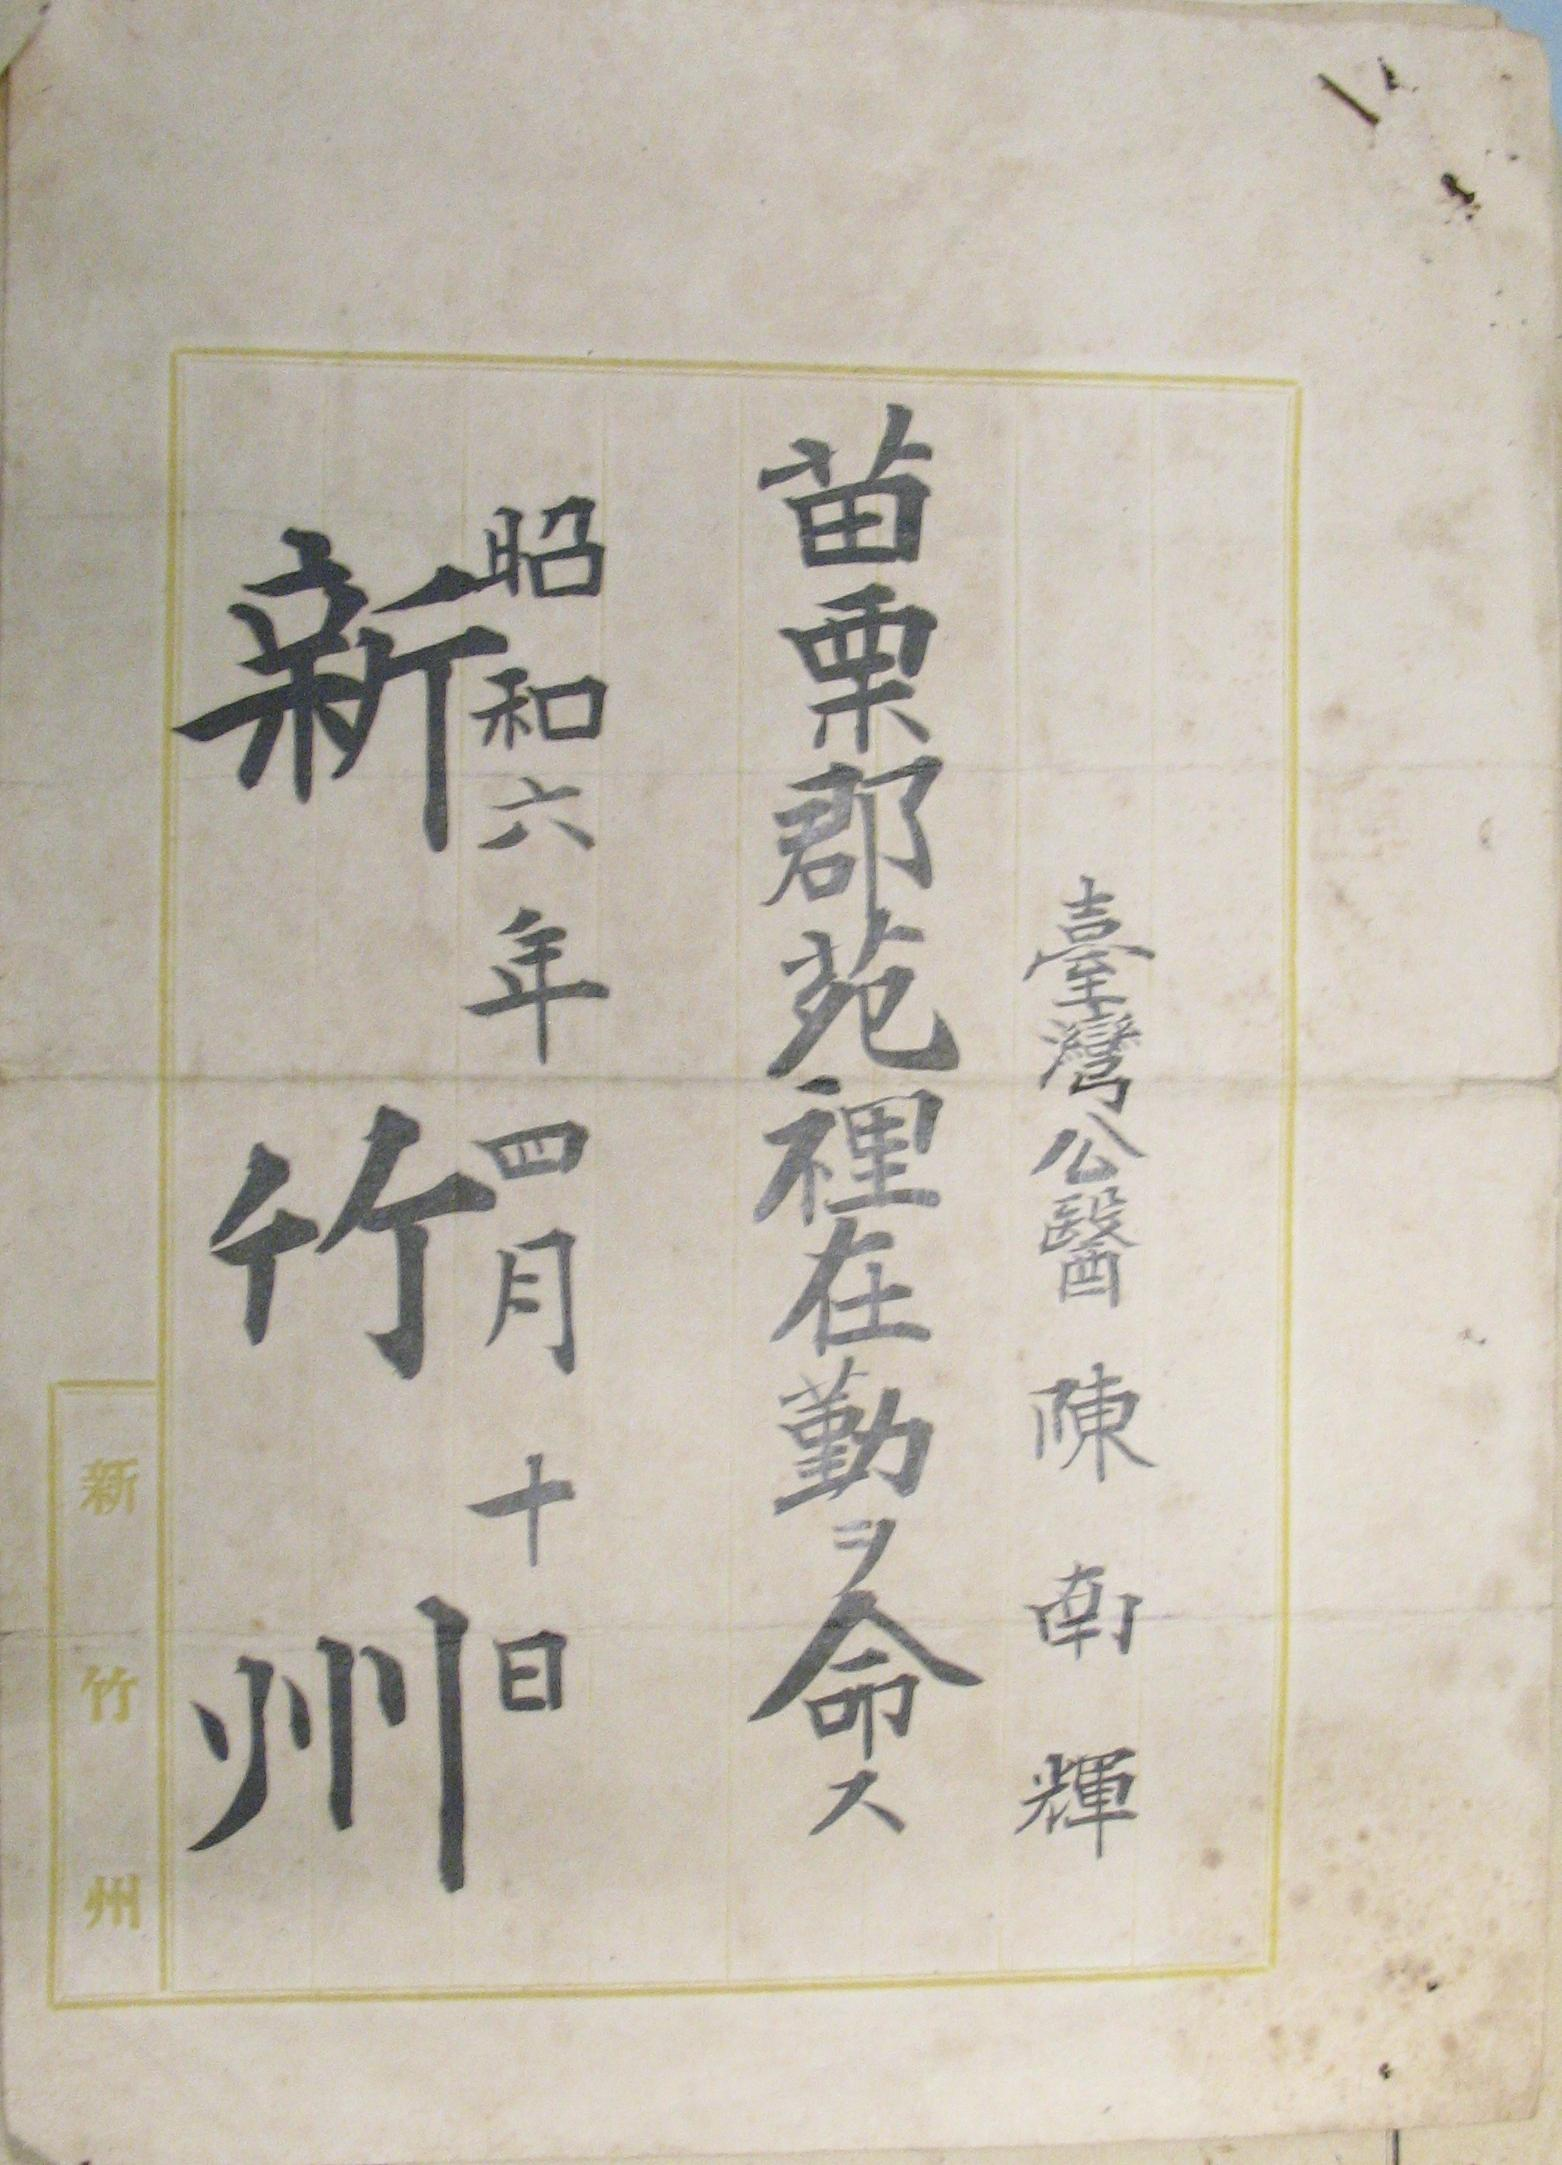 臺灣公醫 陳南輝
苗栗郡苑裡在勤ヲ命ス
昭和六年四月十日
新竹州
新竹州